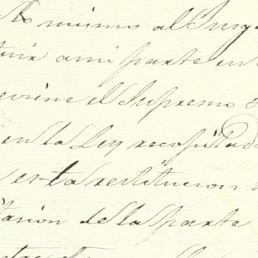 mismo al Juzg
a mi parte en
el Supremo
en la Ley recopilada
esta restitucion
tacion de la parte